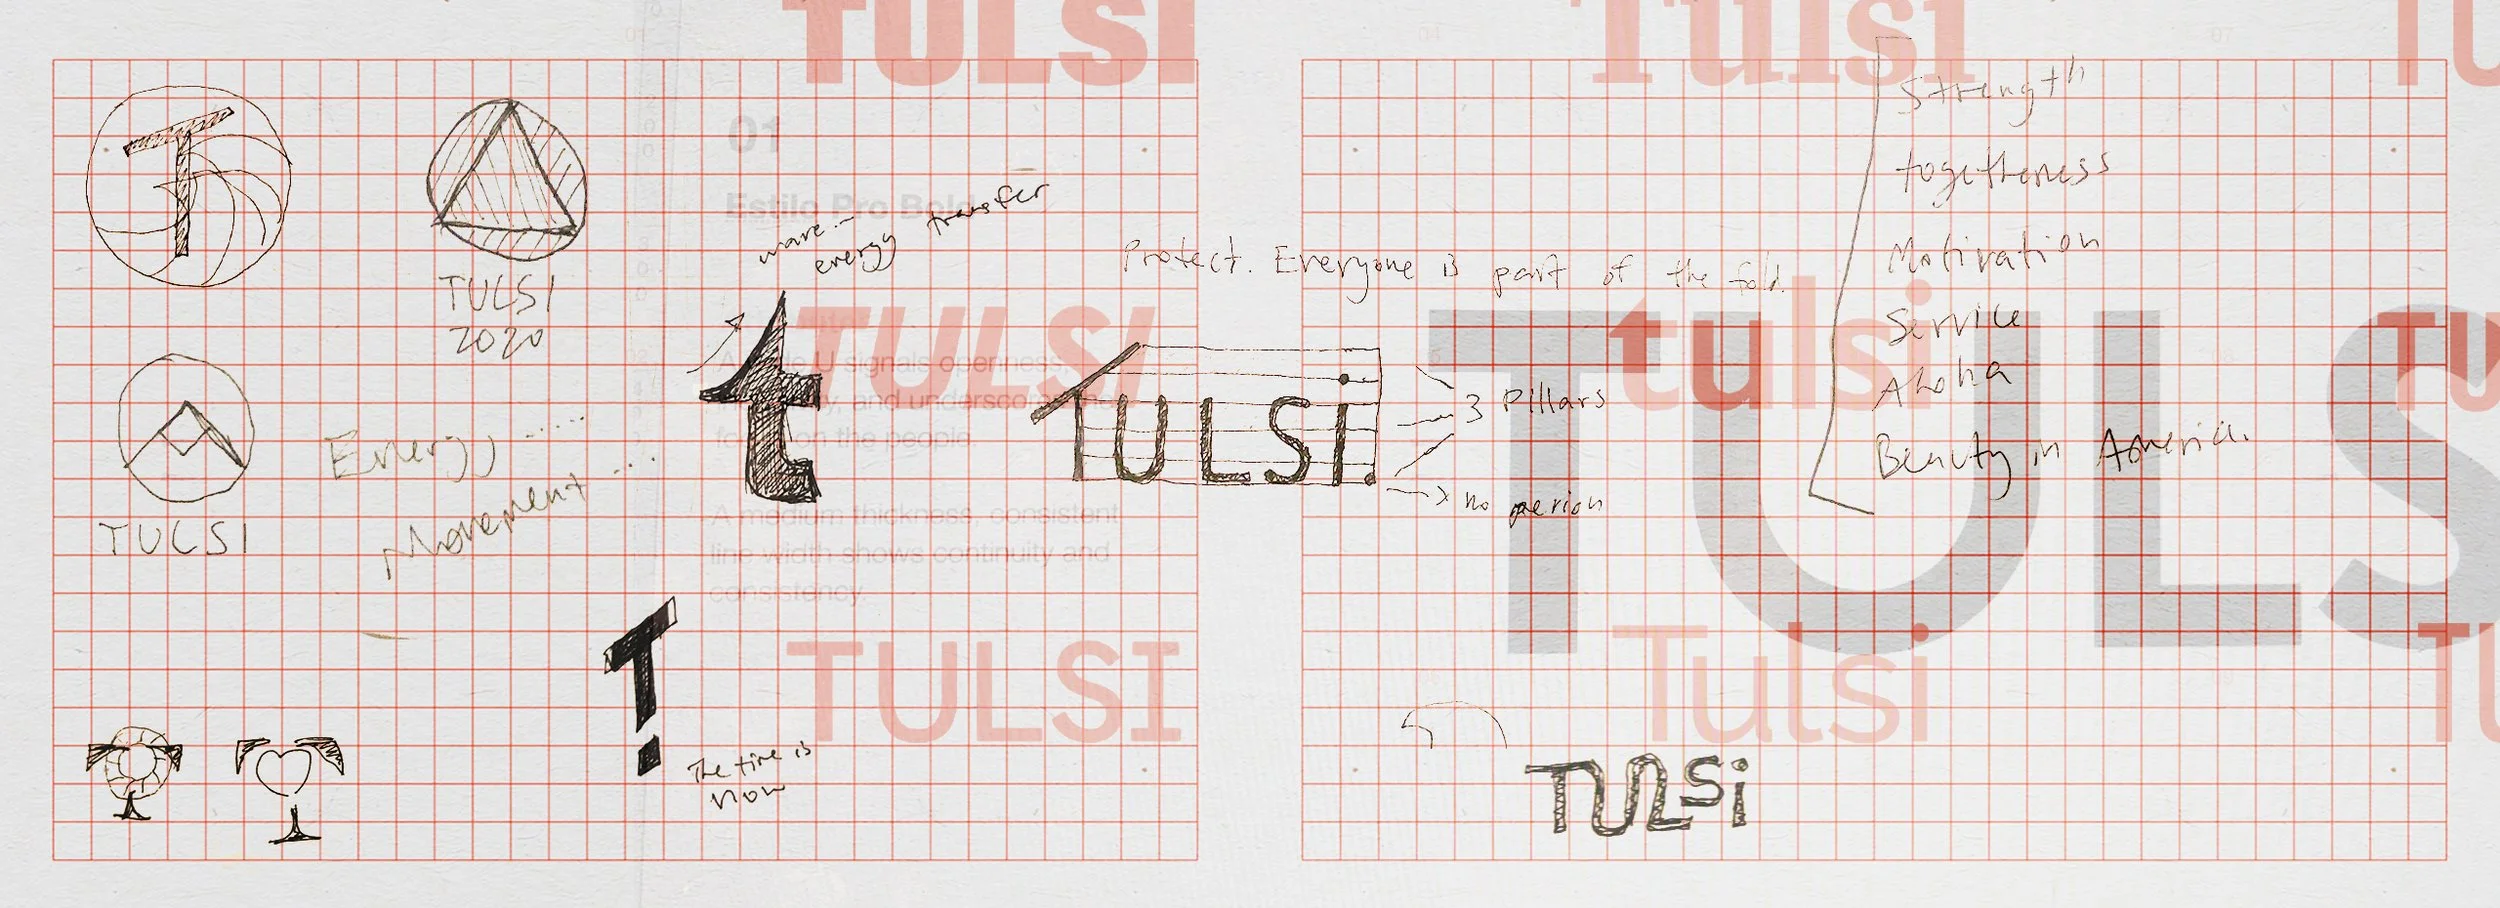 TULSI
Tulsi
01
Strength
togetherness
Estilo Pro Bold
wave --
energy transfer
Motivation
Protect. Everyone is part of the fold.
TULSI
2020
Service
TULSI
tulsi
TULS
A wide U signals openness,
and underscores the
on the people.
Aloha
3 Pillars
TULSI.
Beauty in America.
Energy .....
Movement ...
no period
TULSI
A medium thickness, consistent
line width shows continuity and
consistency.
T
TULSI
Tulsi
The time is
now
TULSi